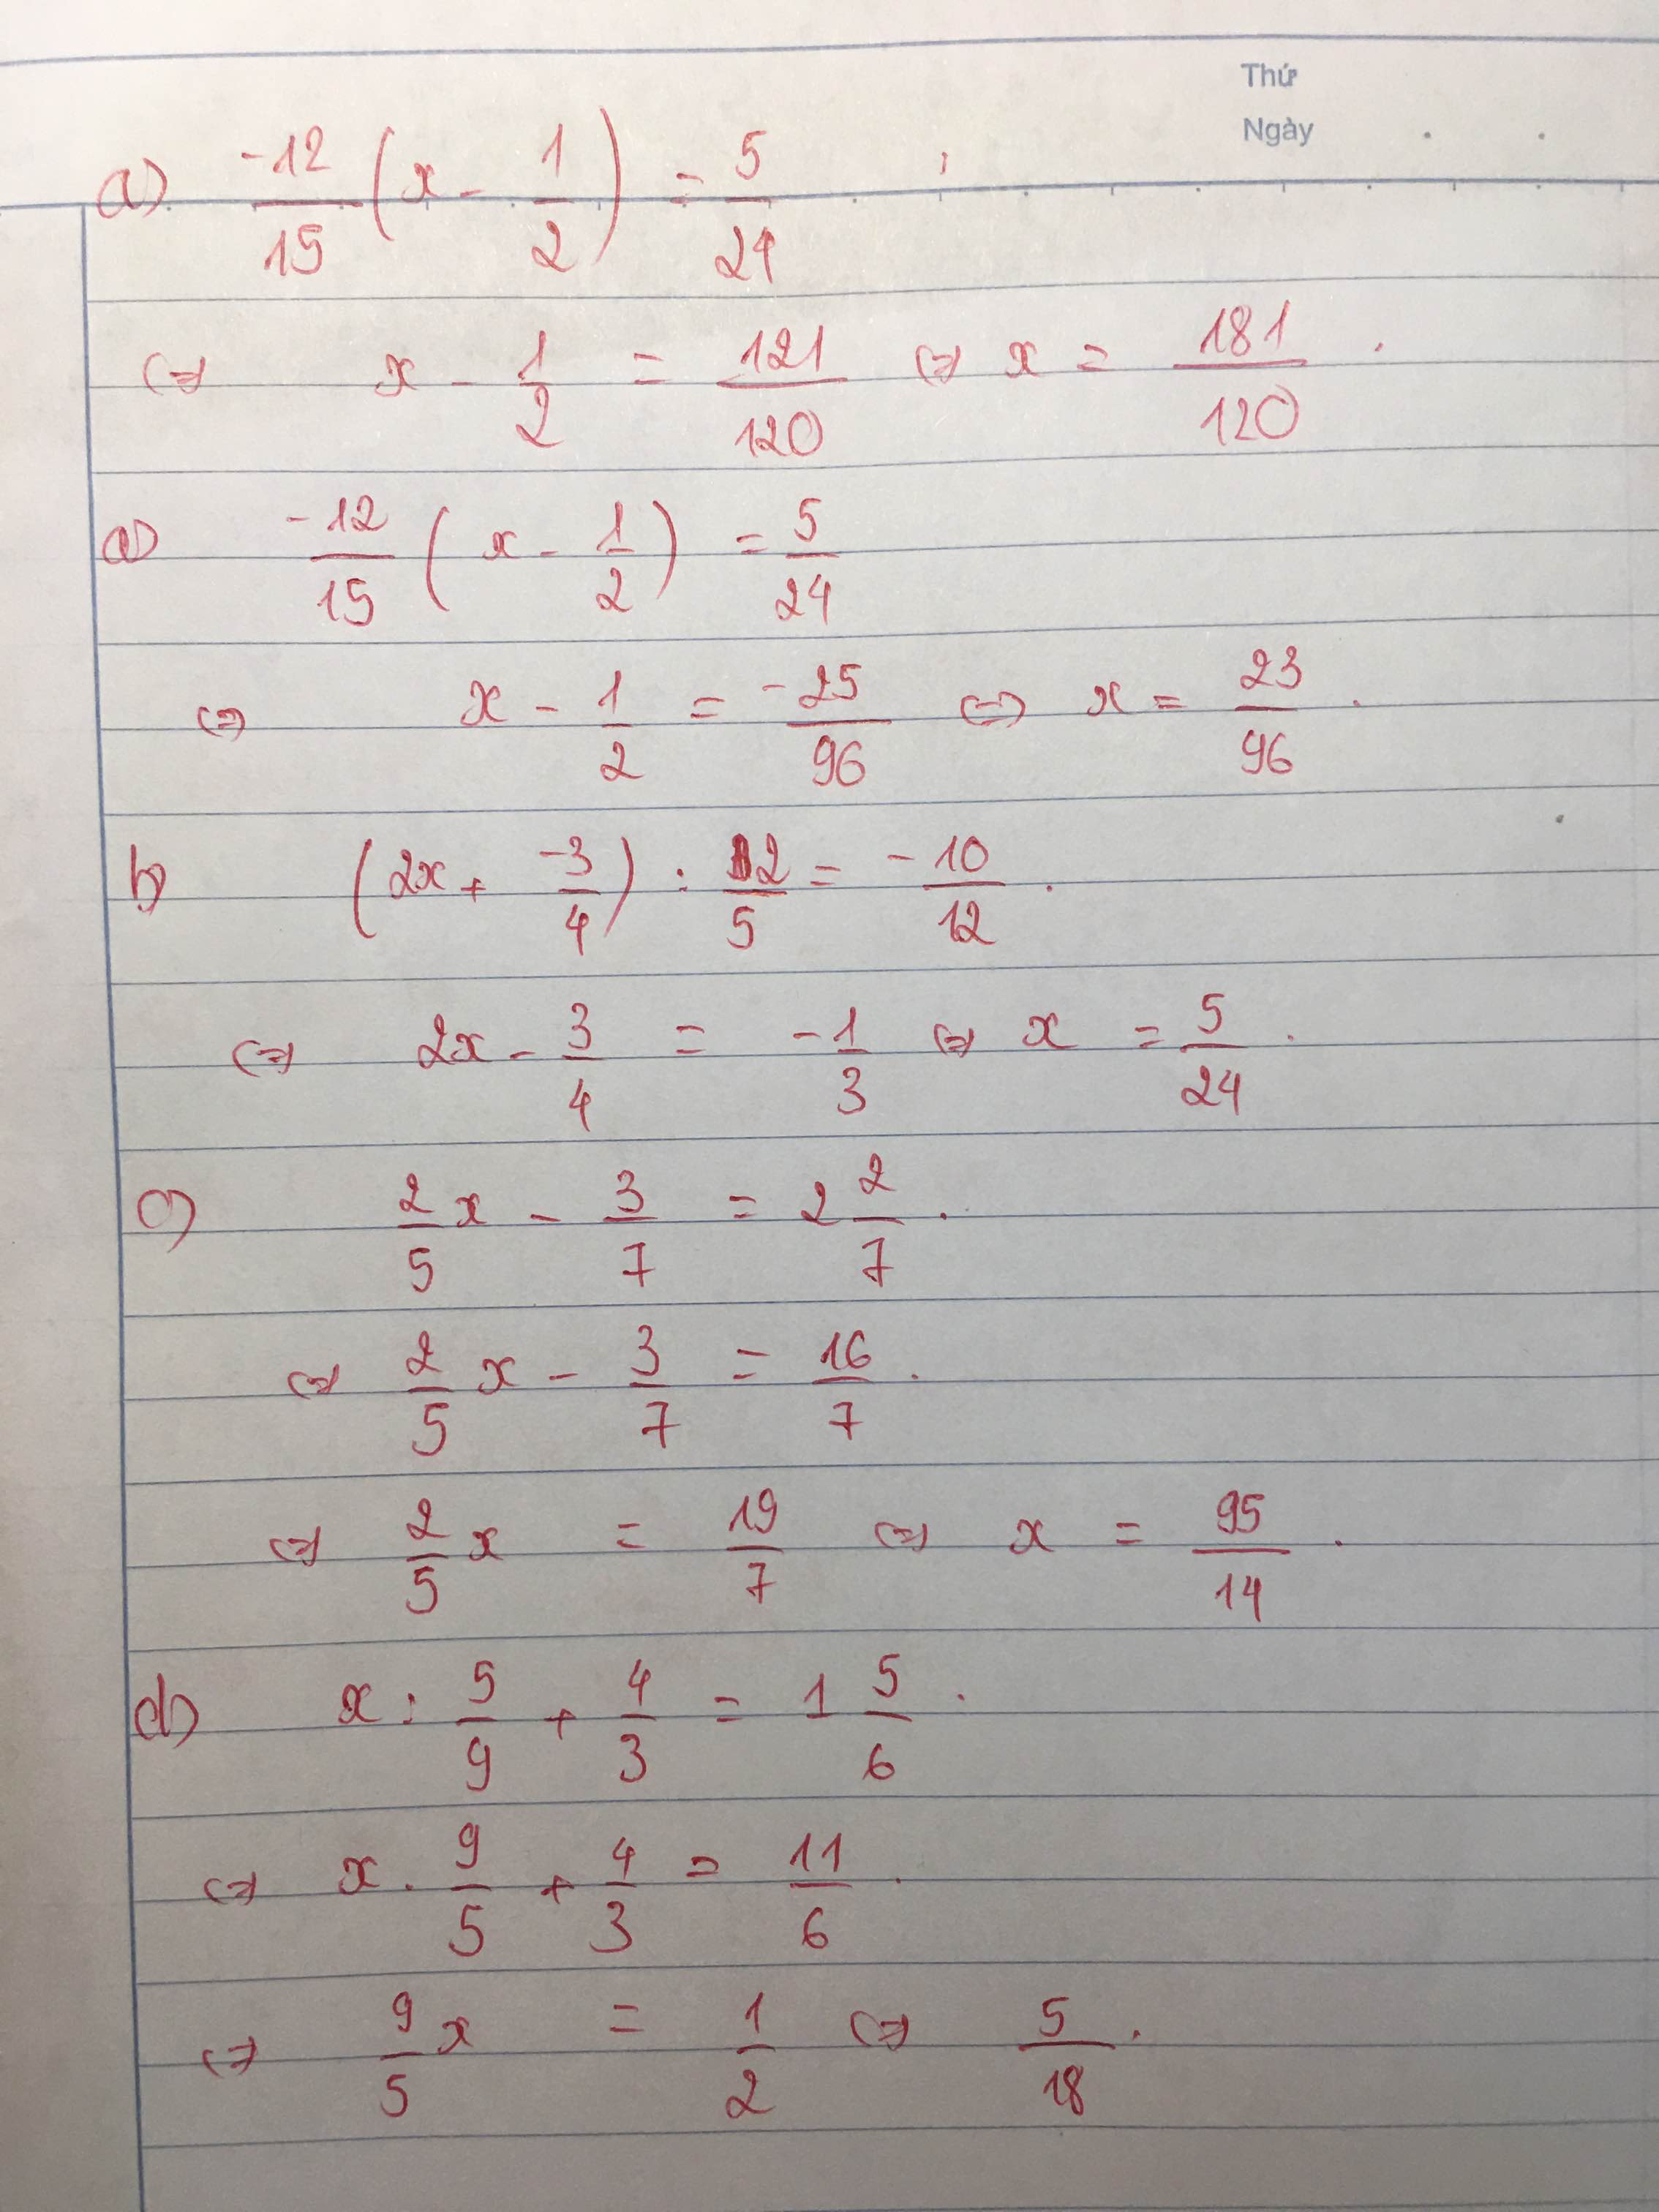 Thứ
Ngày
a) -12/15 (x - 1/2) = 5/24
⇔ x - 1/2 = 121/120 ⇔ x = 181/120 .
a) -12/15 (x - 1/2) = 5/24
⇔ x - 1/2 = -25/96 ⇔ x = 23/96 .
b) (2x + -3/4) : 2/5 = -10/12 .
⇔ 2x - 3/4 = -1/3 ⇔ x = 5/24 .
c) 2/5 x - 3/7 = 2 2/7 .
⇔ 2/5 x - 3/7 = 16/7 .
⇔ 2/5 x = 19/7 ⇔ x = 95/14 .
d) x : 5/9 + 4/3 = 1 5/6 .
⇔ x . 9/5 + 4/3 = 11/6 .
⇔ 9/5 x = 1/2 ⇔ 5/18 .